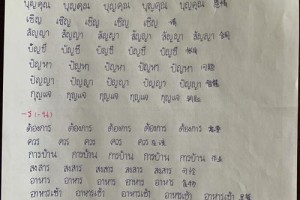 บุญคุณ บุญคุณ บุญคุณ บุญคุณ บุญคุณ
เชิญ เชิญ เชิญ เชิญ เชิญ 请
สัญญา สัญญา สัญญา สัญญา สัญญา สัญญา 合同
บัญชี บัญชี บัญชี บัญชี บัญชี
ปัญหา ปัญหา ปัญหา ปัญหา ปัญหา 问题
ปัญญา ปัญญา ปัญญา ปัญญา ปัญญา
กุญแจ กุญแจ กุญแจ กุญแจ กุญแจ 钥匙
ต้องการ ต้องการ ต้องการ ต้องการ ต้องการ 需要
ควร ควร ควร ควร ควร 应该
การบ้าน การบ้าน การบ้าน การบ้าน การบ้าน 作业
สงสาร สงสาร สงสาร สงสาร สงสาร 可怜
อาหาร อาหาร อาหาร อาหาร อาหาร 食物
อาหารเช้า อาหารเช้า อาหารเช้า อาหารเช้า อาหารเช้า 早餐